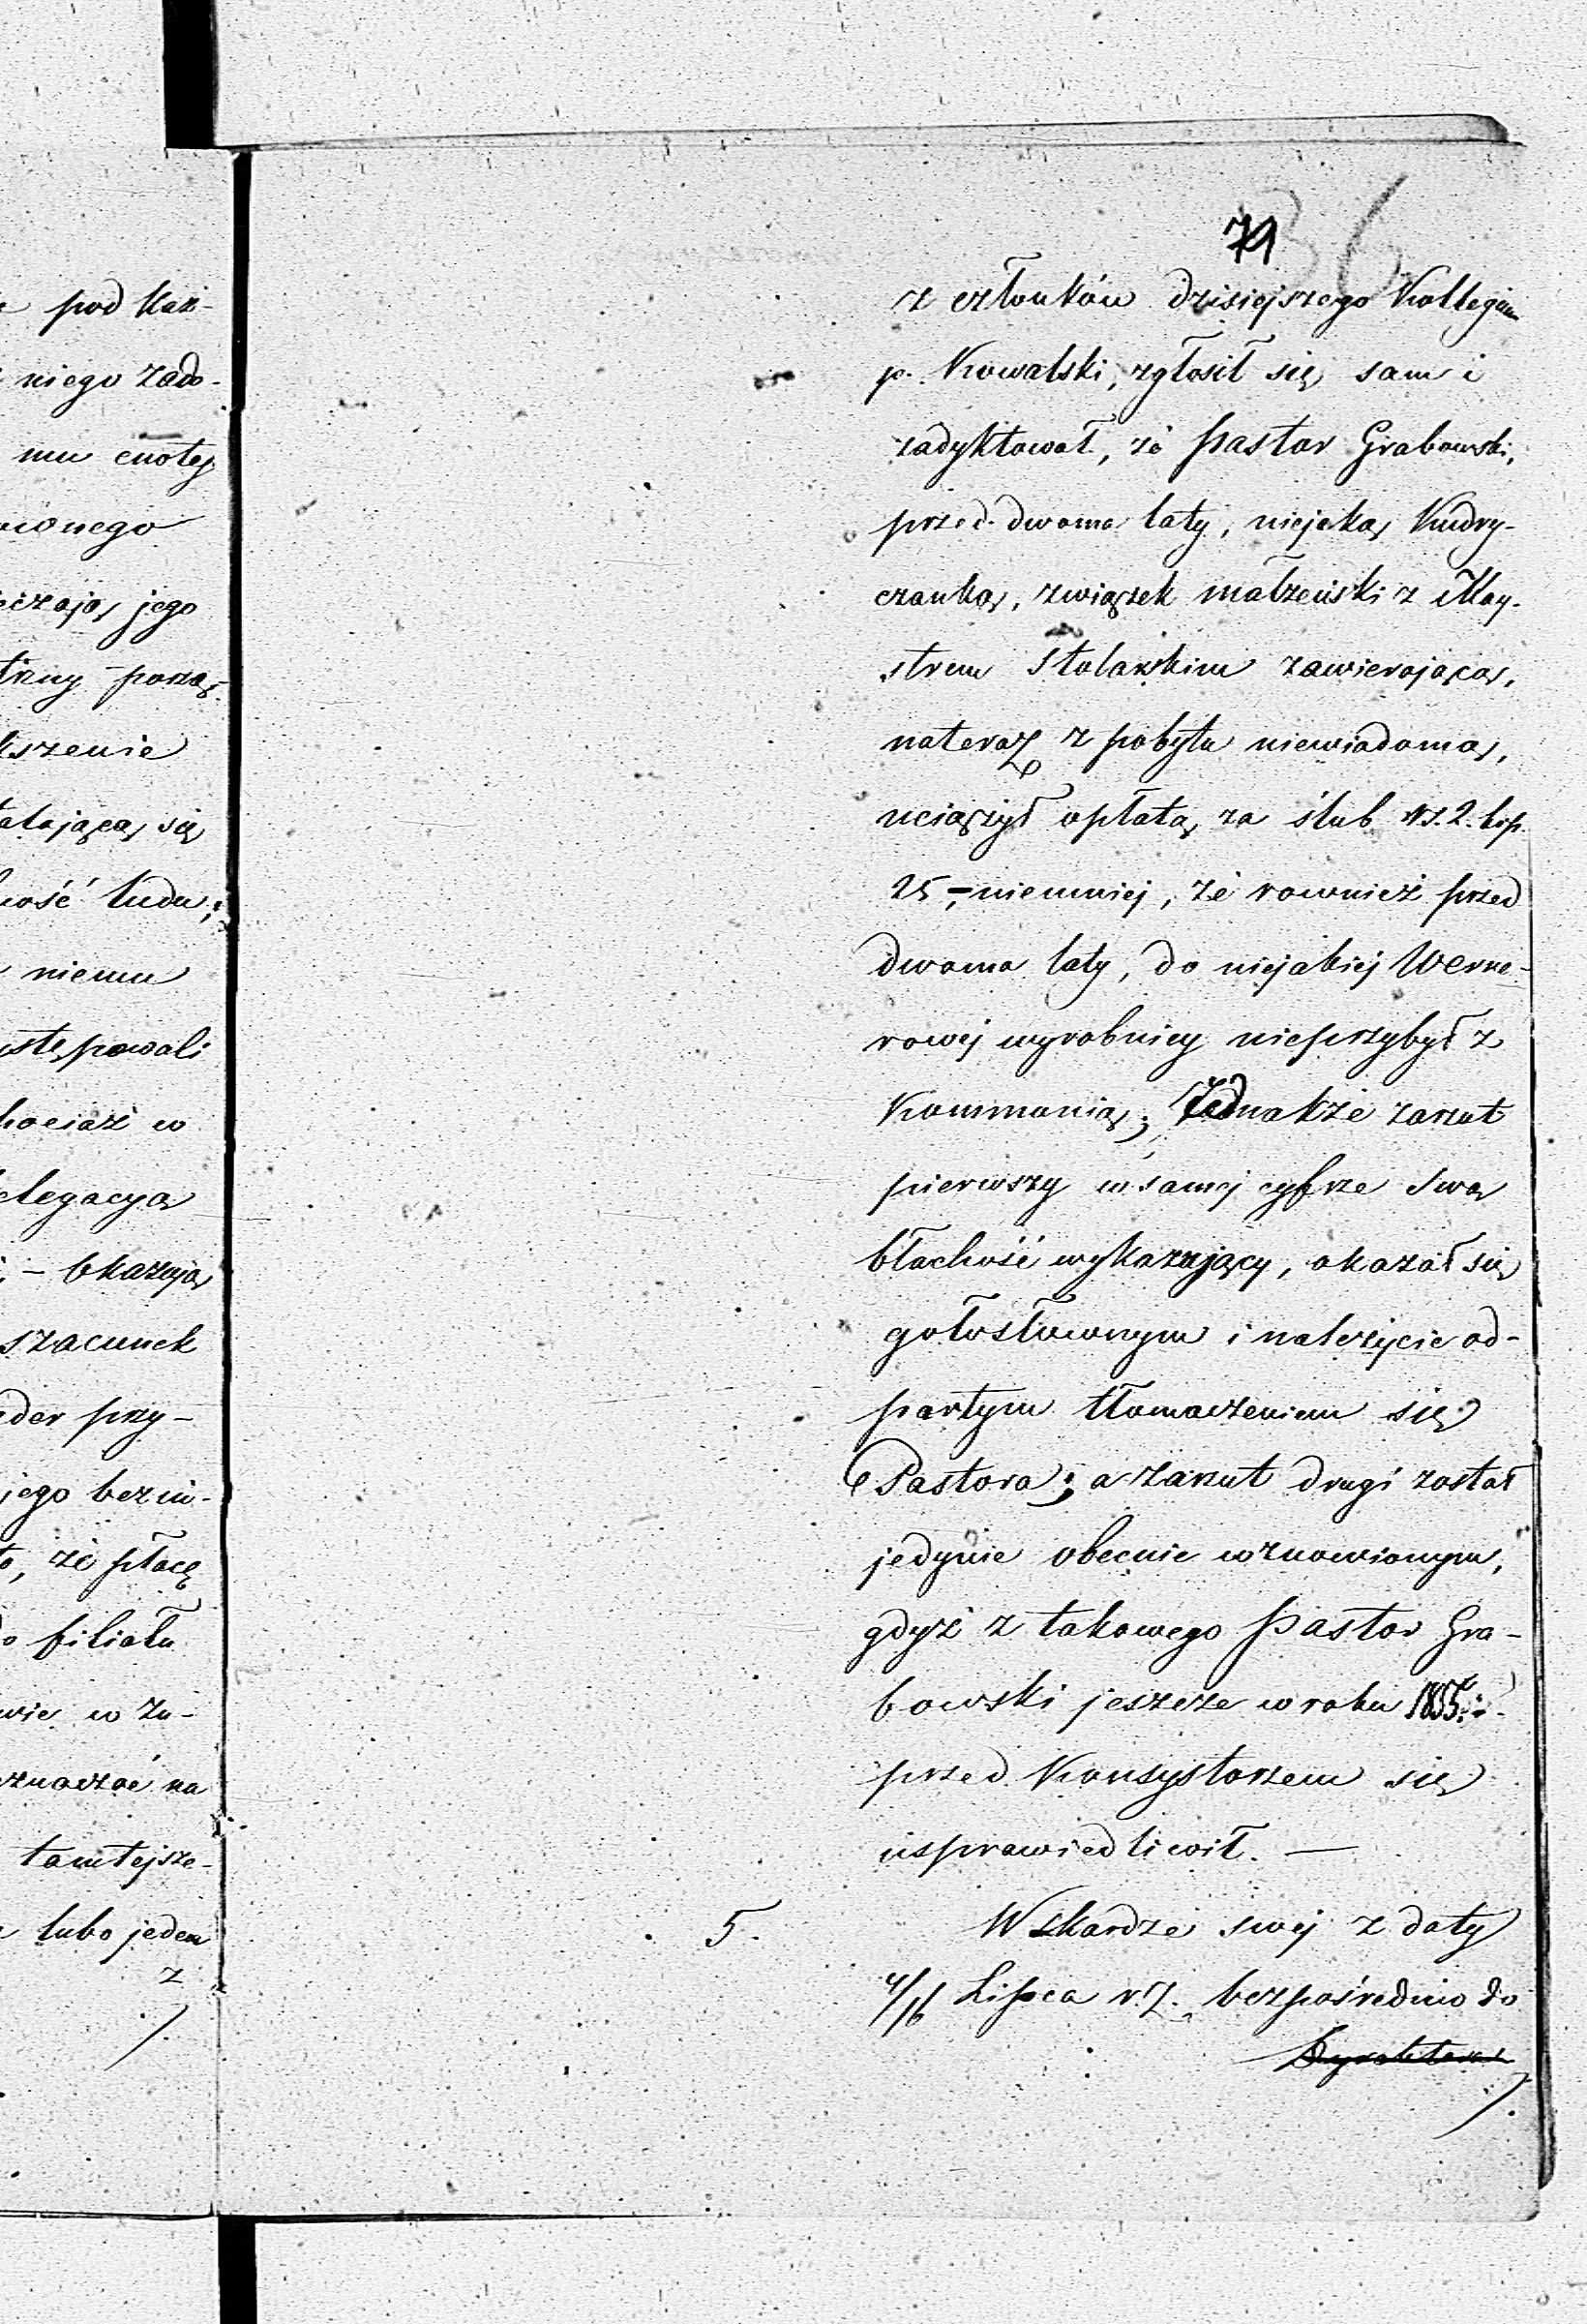 e pod każ-
niego zado-
mu cnotę
owonego
iczają jego
trzny porzą-
kszenie
ałającą się
ność ludu;
niemu
ystępowali
hociaż w
elegacya
- Okazują
szacunek
der przy-
jego bezin-
to, że płacę
do filiału
wie w Zu-
znaczać na
tamtejsze-
lubo jeden
z
/.
71
36
z członków dzisiejszego Kollegium
p. Kowalski, zgłosił się sam i
zadyktował, że Pastor Grabowski,
przed dwoma laty, niejaką Kudry-
czanką, związek małżeński z May-
strem Stolarskim zawierającą,
nateraz z pobytu niewiadomą,
uciążył opłatą za ślub rs. 2. kop.
25,- niemniej, że rownież przed
dwoma laty, do niejakiej Werne-
rowej wyrobnicy nieprzybył z
Kommonią; Jednakże zarzut
pierwszy w samej cyfrze swą
błachość wykazujący, okazał się
gołosłownym i należycie od-
partym tłomaczeniem się
Pastora; a zarzut drugi został
jedynie obecnie wznowionym,
gdyż z takowego Pastor Gra-
bowski jeszcze w roku 1855.
przed Konsystorzem się
usprawiedliwił. —
5. W skardze swej z daty
4/16 Lipca r. z. bezpośrednio do
Dyrektora
/.